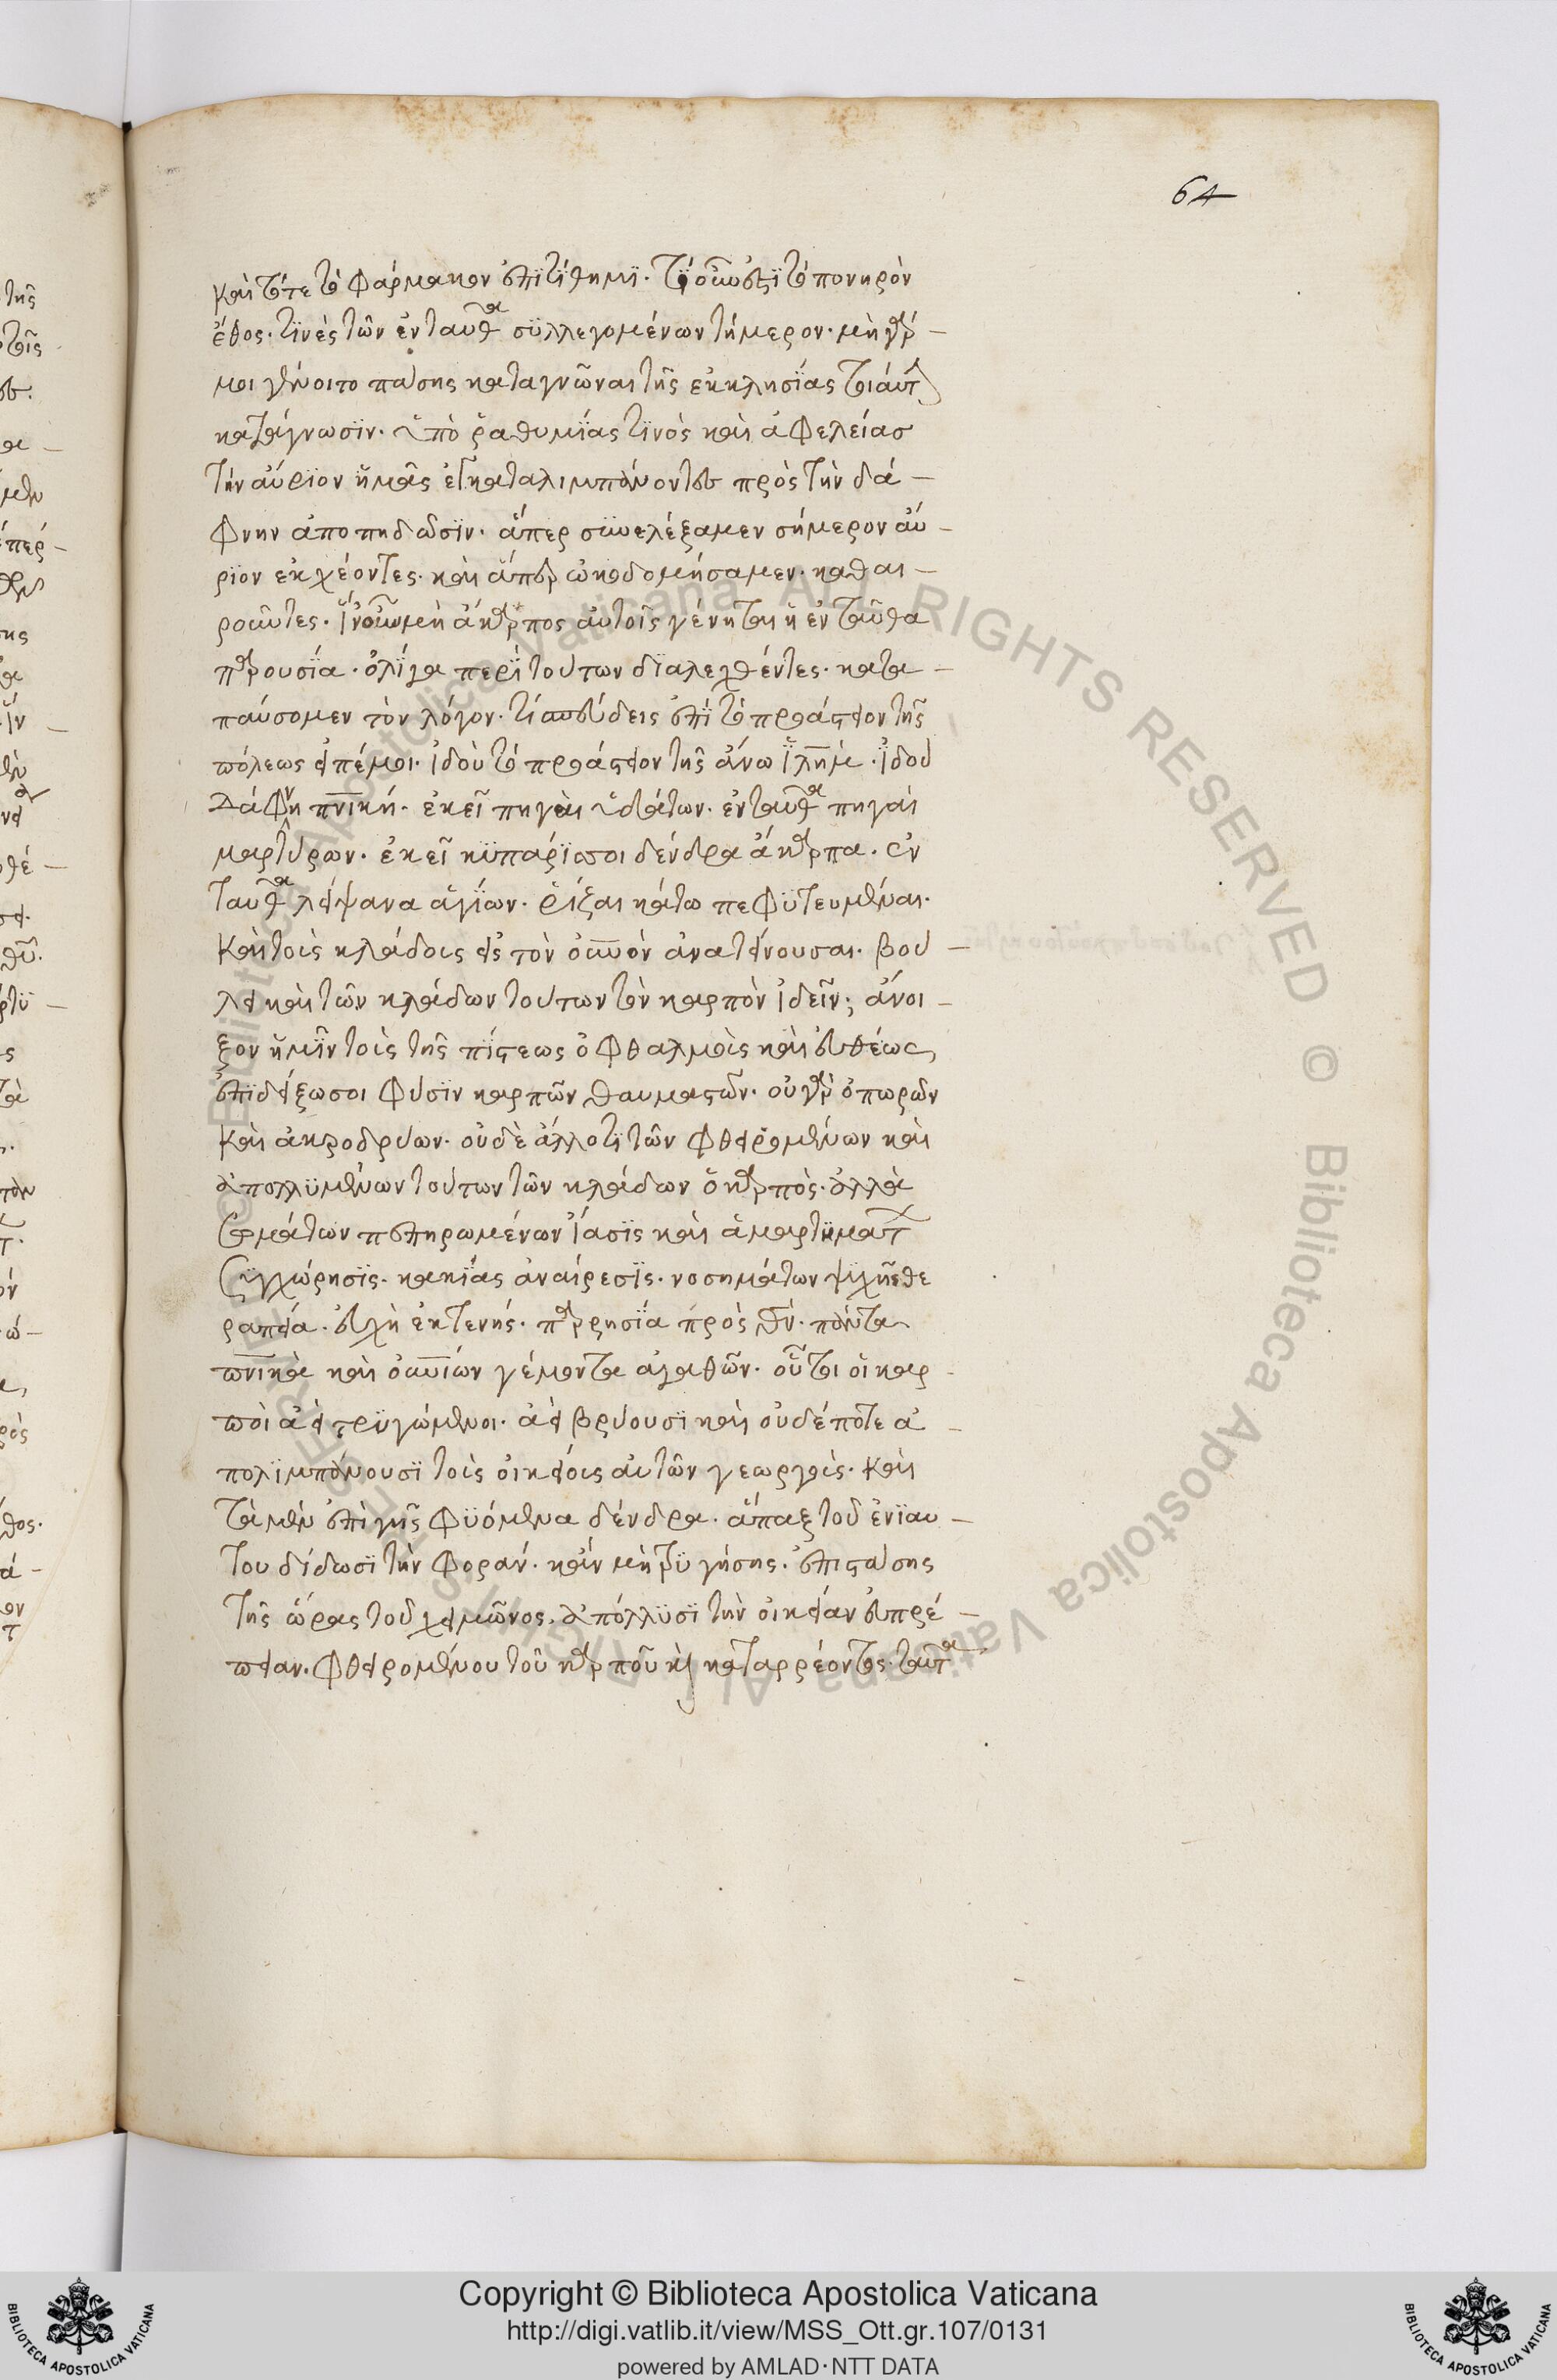 64
καὶ τότε τὸ φάρμακον ἐπιτίθημϊ. τί οὖν ἐστϊ τὸ πονηρὸν
ἔθος. τϊνὲς τῶν ἐνταῦθα σϋλλεγομένων τήμερον. μὴ γάρ –
μοι γένοιτο πάσης καταγνῶναι τῆς ἐκκλησίας τοιαύτ
κατάγνωσϊν. ὑπὸ ῥαθυμίας τϊνὸς καὶ ἀφελείασ
τὴν αὔρϊον ἡμᾶς ἐγκαταλιμπάνοντες πρὸς τὴν δά –
φνην ἀποπηδῶσϊν. ἅπερ σϋνελέξαμεν σήμερον αὔ –
ρϊον ἐκχέοντες. καὶ ἅπερ ὠκοδομήσαμεν. καθαι –
ροῦντες. ἵν' οὖν μὴ ἄκαρπος αὐτοῖς γένηται ἡ ἐνταῦθα
παρουσία. ὀλίγα περὶ τούτων διαλεχθέντες. κατα –
παύσομεν τὸν λόγον. τί σπεύδεις ἐπὶ τὸ προάστειον τῆς
πόλεως εἰπέ μοι. ἰδοὺ τὸ προάστειον τῆς ἄνω ἱλημ. ἰδοὺ
Δάφνη πνικὴ. ἐκεῖ πηγαὶ ὑδάτων. ἐνταῦθα πηγαὶ
μαρτύρων. ἐκεῖ κϋπάρισσοι δένδρα ἄκαρπα. ἐν
ταῦθα λείψανα ἁγίων. ῥίζαι κάτω πεφϋτευμέναι.
καὶ τοὺς κλάδους εἰς τὸν οὐνον ἀνατείνουσαι. βού –
λει καὶ τῶν κλάδων τούτων τὸν καρπὸν ἰδεῖν; ἄνοι –
ξον ἡμῖν τοὺς τῆς πίστεως ὀφθαλμοὺς καὶ εὐθέως
ἐπιδείξω σοι φύσϊν καρπῶν θαυμαστῶν. οὐ γὰρ ὀπωρῶν
καὶ ἀκροδρύων. οὐδὲ ἄλλο τϊ τῶν φθειρομένων καὶ
ἀπολλϋμένων τούτων τῶν κλάδων ὁ καρπὸς. ἀλλὰ
σωμάτων πεπηρωμένων ἴασϊς καὶ ἁμαρτημάτ
συγχώρησϊς. κακίας ἀναίρεσϊς. νοσημάτων ψϋχῆς θε
ραπεία. εὐχὴ ἐκτενής. παρρησία πρὸς θν. πάντα
πνικὰ καὶ οὐνίων γέμοντα ἀγαθῶν. οὗτοι οἱ καρ
ποὶ ἀεὶ τρϋγώμενοι. ἀεὶ βρύουσϊ καὶ οὐδέποτε ἀ –
πολϊμπάνουσϊ τοὺς οἰκείους αὐτῶν γεωργοὺς. καὶ
τὰ μὲν ἐπὶ γῆς φϋόμενα δένδρα. ἅπαξ τοῦ ἐνϊαυ –
τοῦ δίδωσϊ τὴν φοράν. κἂν μὴ τρϋγήσης. ἐπιστάσης
τῆς ὥρας τοῦ χειμῶνος. ἀπόλλϋσϊ τὴν οἰκείαν εὐπρέ –
πειαν. φθειρομένου τοῦ καρποῦ καὶ καταρρέοντος. ταῦτα